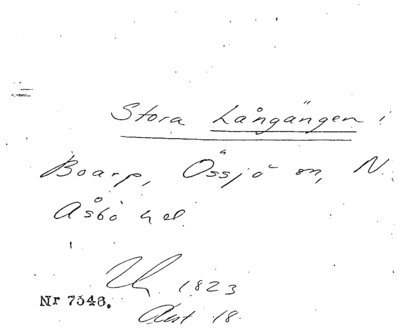 Stora Långängen i
Boarp, Össjö sn, N.
Åsbo hd.
1823
Nr 7546.
Avst 18.